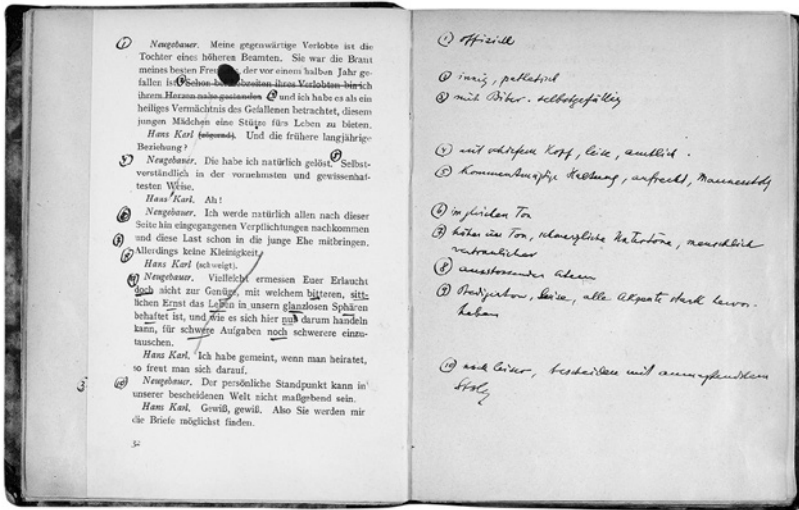 ① Neugebauer. Meine gegenwärtige Verlobte ist die
Tochter eines höheren Beamten. Sie war die Braut
meines besten der vor einem halben Jahr ge-
fallen ist. ② Schon bei Lebzeiten ihres Verlobten bin ich
ihrem Herzen nahe gestanden ③ und ich habe es als ein
heiliges Vermächtnis des Gefallenen betrachtet, diesem
jungen Mädchen eine Stütze fürs Leben zu bieten.
Hans Karl (zögernd). Und die frühere langjährige
Beziehung?
④ Neugebauer. Die habe ich natürlich gelöst. ⑤ Selbst-
verständlich in der vornehmsten und gewissenhaf-
testen Weise.
Hans Karl. Ah!
⑥ Neugebauer. Ich werde natürlich allen nach dieser
Seite hin eingegangenen Verpflichtungen nachkommen
⑦ und diese Last schon in die junge Ehe mitbringen.
⑧ Allerdings keine Kleinigkeit.
Hans Karl (schweigt).
⑨ Neugebauer. Vielleicht ermessen Euer Erlaucht
doch nicht zur Genüge, mit welchem bitteren, sitt-
lichen Ernst das Leben in unsern glanzlosen Sphären
behaftet ist, und wie es sich hier nur darum handeln
kann, für schwere Aufgaben noch schwerere einzu-
tauschen.
Hans Karl. Ich habe gemeint, wenn man heiratet,
so freut man sich darauf.
3 ⑩ Neugebauer. Der persönliche Standpunkt kann in
unserer bescheidenen Welt nicht maßgebend sein.
Hans Karl. Gewiß, gewiß. Also Sie werden mir
die Briefe möglichst finden.
32
① offiziell
② innig, pathetisch
③ mit Biber. selbstgefällig
④ mit schiefem Kopf, leise, amtlich.
⑤ Kommentmäßige Haltung, aufrecht, Mannesstolz
⑥ im gleichen Ton
⑦ höher im Ton, schmerzliche Naturtöne, menschlich
vertraulicher
⑧ ausstossender Atem
⑨ Predigerton, leise, alle Akzente stark hervor-
heben
⑩ noch leiser, bescheiden mit anmaßendem
Stolz